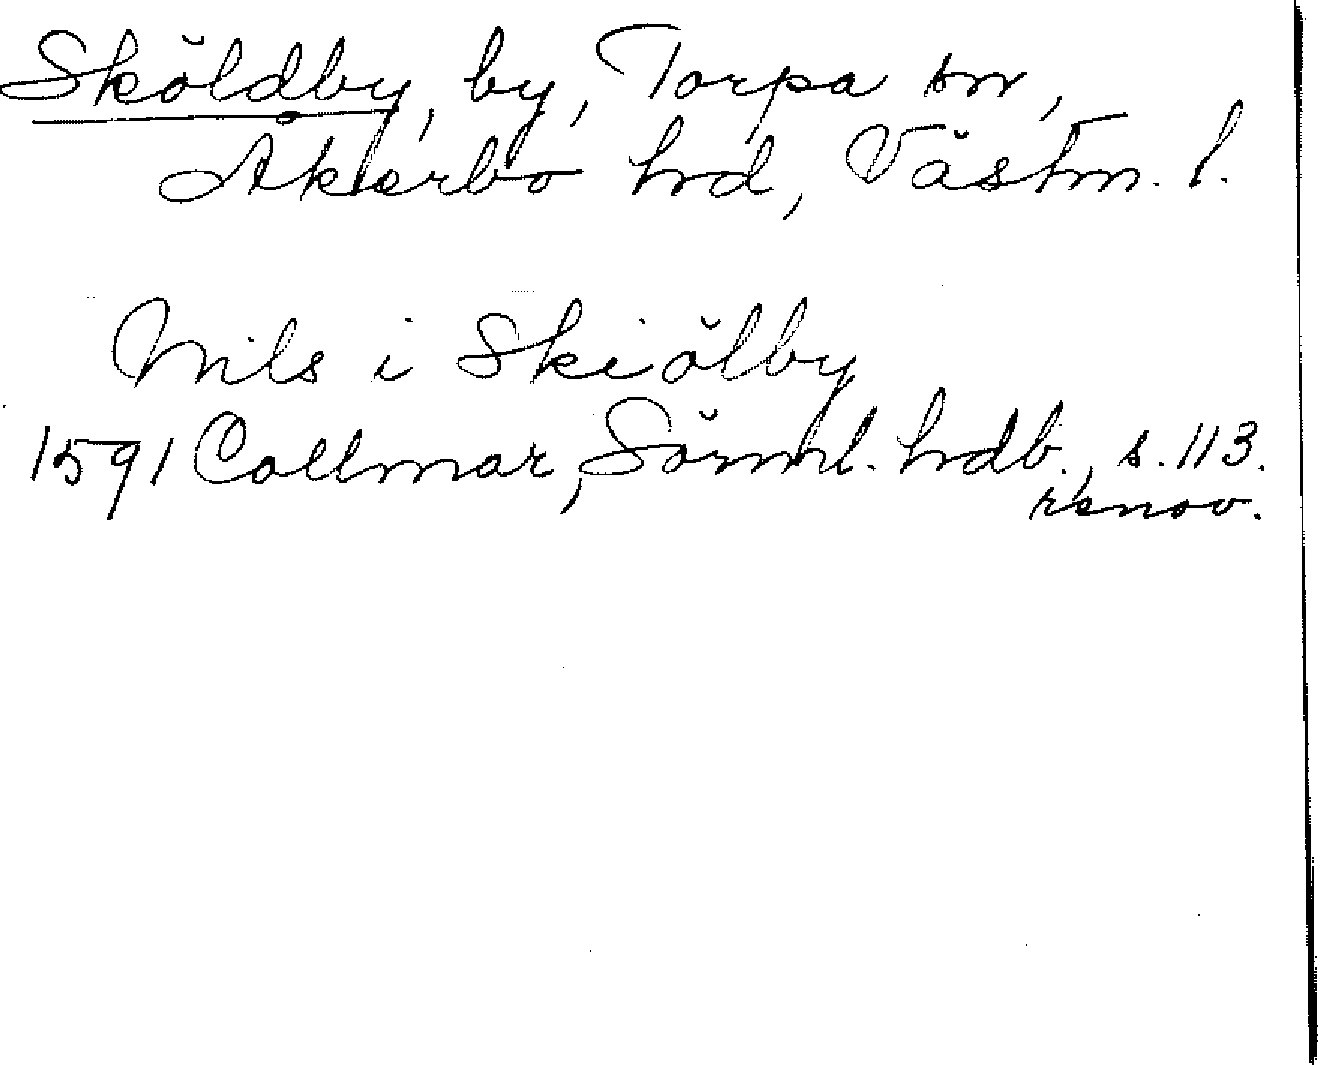 Sköldby, by, Torpa sn,
Åkerbo hrd, Västm. l.
Nils i Skiölby
1591 Collmar, Sörml. hrdb., s. 113.
renov.